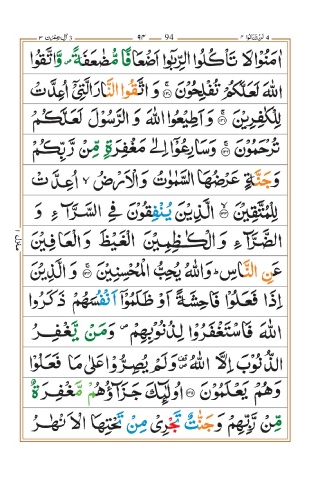 اٰمَنُوْا لَا تَاْكُلُوا الرِّبٰۤوا اَضْعَافًا مُّضٰعَفَةً ۪ وَّاتَّقُوا
اللّٰهَ لَعَلَّكُمْ تُفْلِحُوْنَ ۚ وَ اتَّقُوا النَّارَ الَّتِیْۤ اُعِدَّتْ
لِلْكٰفِرِیْنَ ۚ وَ اَطِیْعُوا اللّٰهَ وَ الرَّسُوْلَ لَعَلَّكُمْ
تُرْحَمُوْنَ ۚ وَ سَارِعُوْۤا اِلٰی مَغْفِرَةٍ مِّنْ رَّبِّكُمْ
وَ جَنَّةٍ عَرْضُهَا السَّمٰوٰتُ وَ الْاَرْضُ ۙ اُعِدَّتْ
لِلْمُتَّقِیْنَ ۙ الَّذِیْنَ یُنْفِقُوْنَ فِی السَّرَّآءِ وَ
الضَّرَّآءِ وَ الْكٰظِمِیْنَ الْغَیْظَ وَ الْعَافِیْنَ
عَنِ النَّاسِ ؕ وَ اللّٰهُ یُحِبُّ الْمُحْسِنِیْنَ ۚ وَ الَّذِیْنَ
اِذَا فَعَلُوْا فَاحِشَةً اَوْ ظَلَمُوْۤا اَنْفُسَهُمْ ذَكَرُوا
اللّٰهَ فَاسْتَغْفَرُوْا لِذُنُوْبِهِمْ ۪ وَ مَنْ یَّغْفِرُ
الذُّنُوْبَ اِلَّا اللّٰهُ ۪۫ وَ لَمْ یُصِرُّوْا عَلٰی مَا فَعَلُوْا
وَ هُمْ یَعْلَمُوْنَ اُولٰٓىِٕكَ جَزَآؤُهُمْ مَّغْفِرَةٌ
مِّنْ رَّبِّهِمْ وَ جَنّٰتٌ تَجْرِیْ مِنْ تَحْتِهَا الْاَنْهٰرُ
94
۹۴